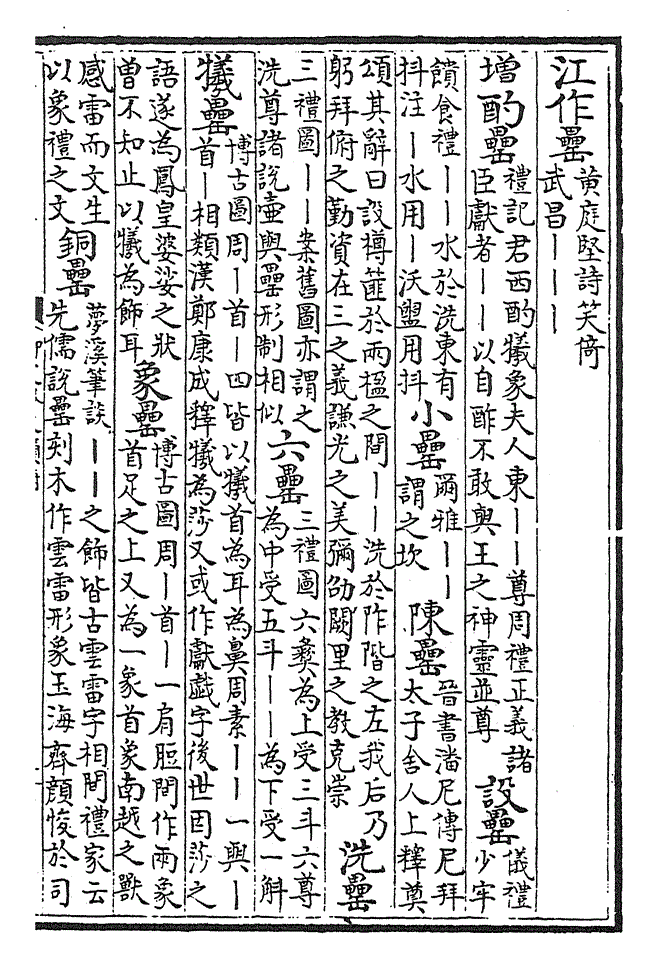 江作罍
黄庭堅詩笑倚
武昌丨丨丨
增酌罍
禮記君西酌犧象夫人東丨丨尊周禮正義諸
臣獻者丨丨以自酢不敢與王之神靈並尊
設罍
儀禮
少牢
饋食禮丨丨水於洗東有
抖注丨水用丨沃盥用抖
小罍
爾雅丨丨
謂之坎
陳罍
晉書潘尼傳尼拜
太子舍人上釋奠
頌其辭曰設樽篚於兩楹之間丨丨洗於阼階之左我后乃
躬拜俯之勤資在三之義謙光之美彌劭闕里之教克崇
洗罍
三禮圖丨丨案舊圖亦謂之
洗尊諸說壺與罍形制相似
六罍
三禮圖六彝為上受三斗六尊
為中受五斗丨丨為下受一斛
犧罍
博古圖周丨首丨四皆以犧首為耳為鼻周素丨丨一與丨
首丨相類漢鄭康成釋犧為莎又或作獻戯字後世因莎之
語遂為鳳皇婆娑之狀
曾不知止以犧為飾耳
象罍
博古圖周丨首丨一肩脰間作兩象
首足之上又為一象首象南越之獸
感雷而文生
以象禮之文
銅罍
夢溪筆談丨丨之飾皆古雲雷字相間禮家云
先儒說罍刻木作雲雷形象玉海齊顔悛於司